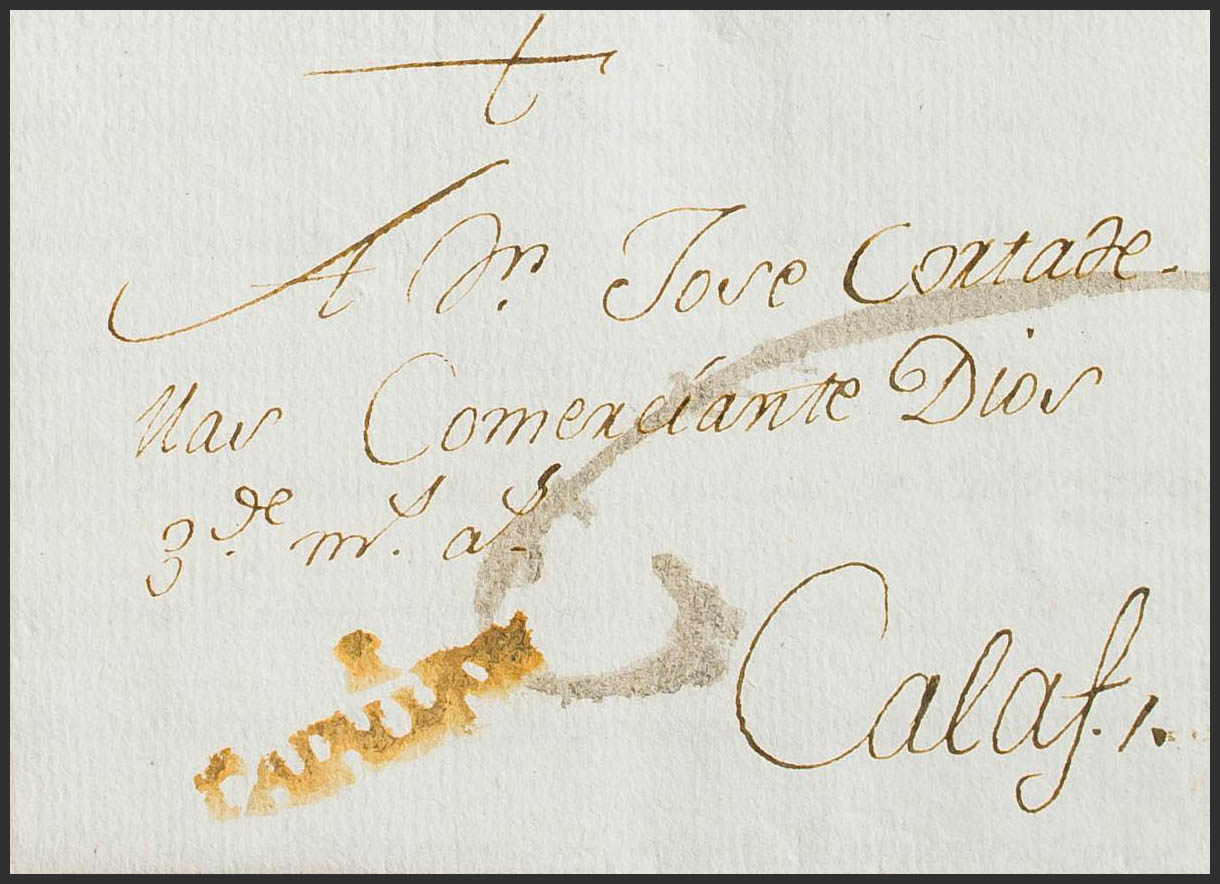 A Dn. Jose Cortade-
llas Comerciante Dios
gde. ms. as.
Calaf. 1.